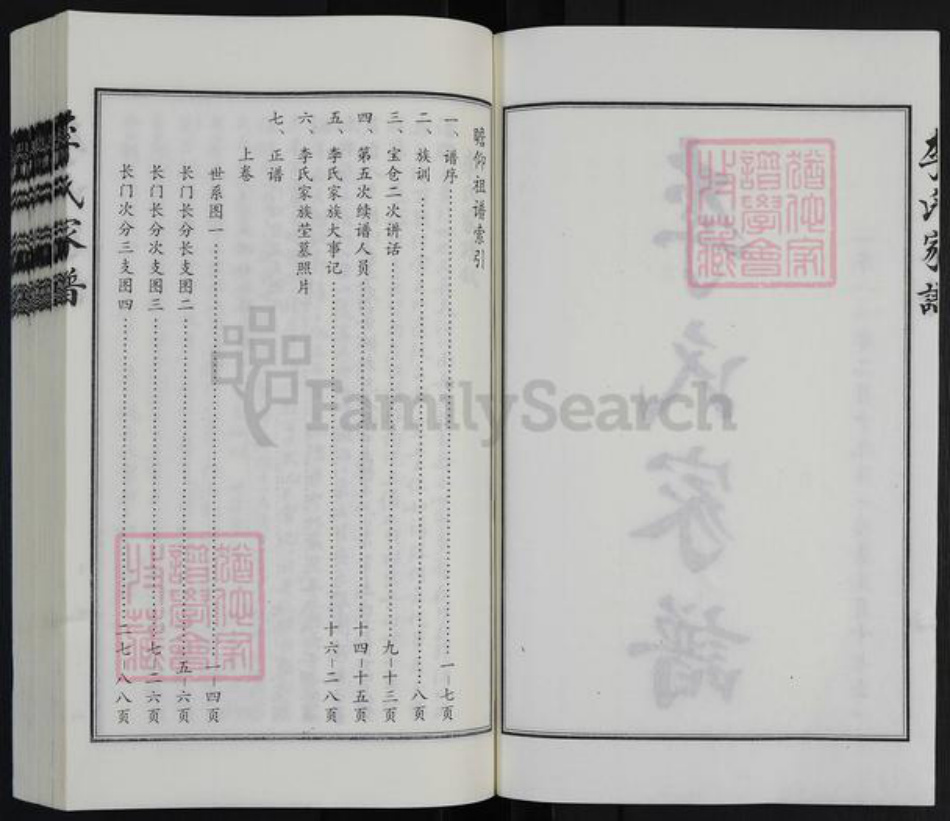 李氏家譜
瞻仰祖谱索引
一、谱序……一–七页
二、族训……八页
三、宝仓二次讲话……九–十三页
四、第五次续谱人员……十四–十五页
五、李氏家族大事记……十六–二八页
六、李氏家族茔墓照片
七、正谱
上卷
世系图一……一–四页
长门长分长支图二……五–六页
长门长分次支图三……七–二六页
长门次分三支图四……二七–八八页
李氏家譜
FamilySearch